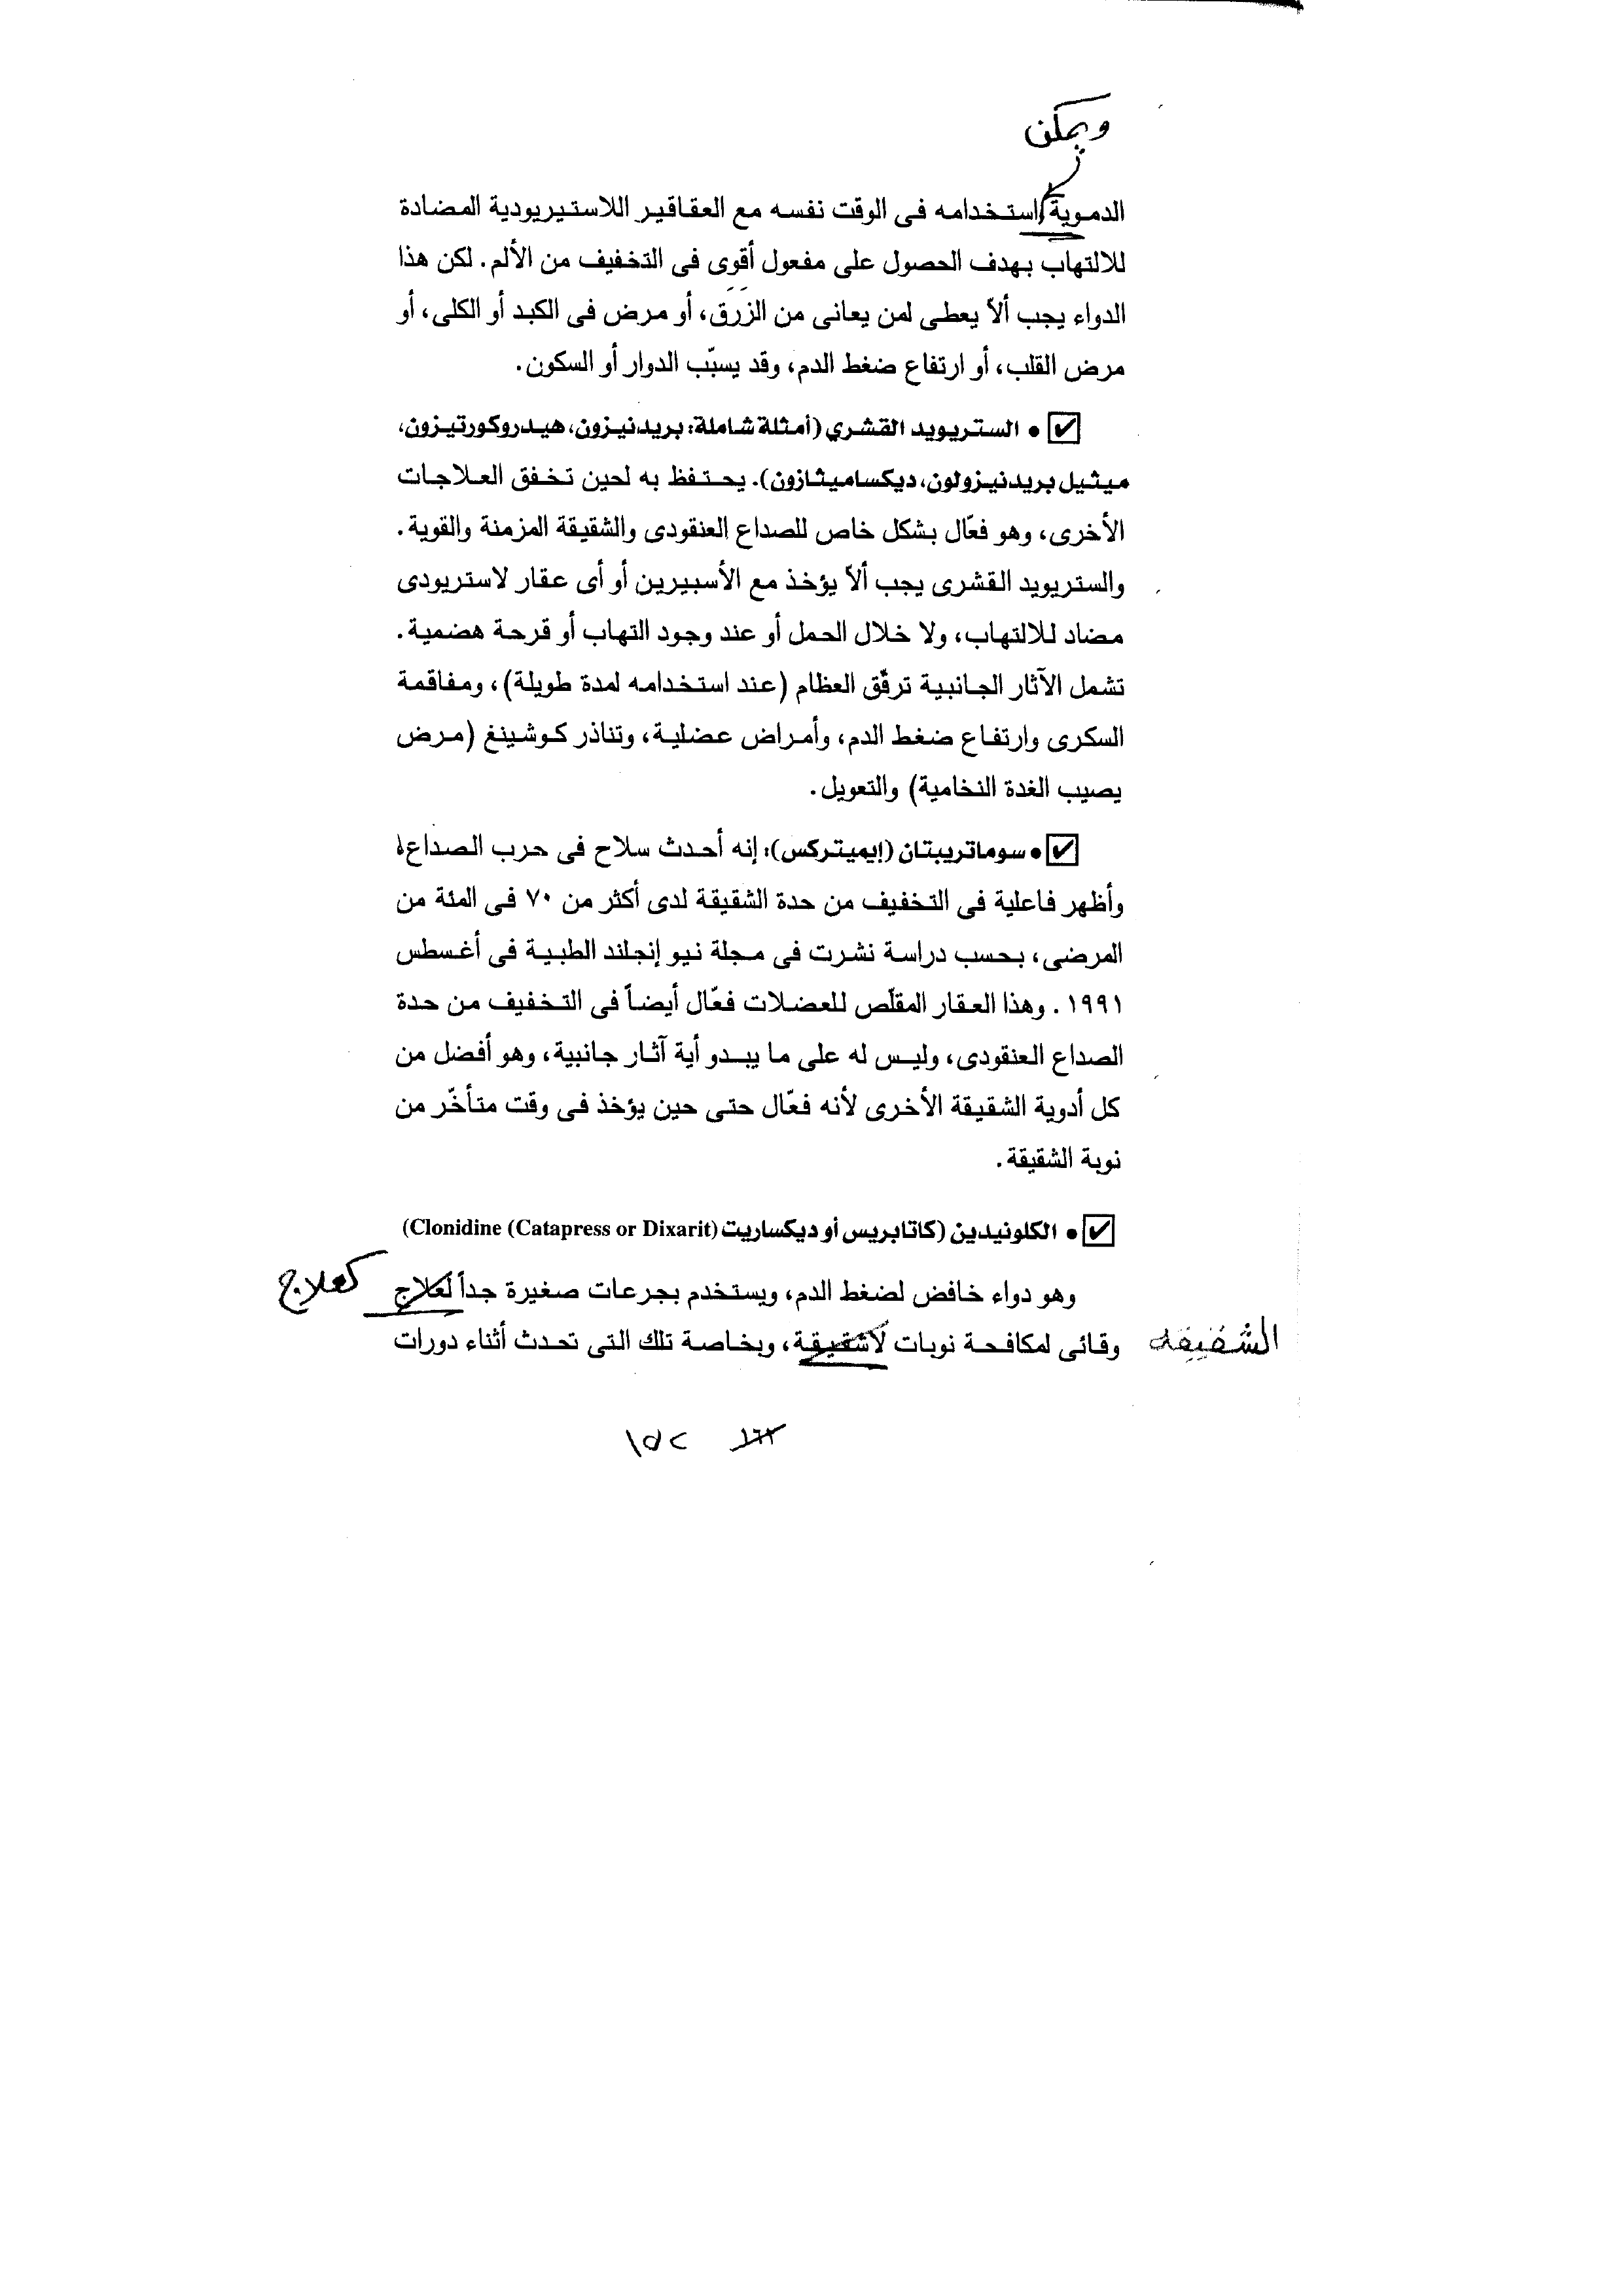 ويمكن
الدموية استخدامه فى الوقت نفسه مع العقاقير اللاستيريودية المضادة
للالتهاب بهدف الحصول على مفعول أقوى فى التخفيف من الألم. لكن هذا
الدواء يجب ألاّ يعطى لمن يعانى من الزَرَق، أو مرض فى الكبد أو الكلى، أو
مرض القلب، أو ارتفاع ضغط الدم، وقد يسبّب الدوار أو السكون.
☑ • الستريويد القشري (أمثلة شاملة: بريدنيزون، هيدروكورتيزون،
ميثيل بريدنيزولون، ديكساميثازون). يحتفظ به لحين تخفق العلاجات
الأخرى، وهو فعّال بشكل خاص للصداع العنقودى والشقيقة المزمنة والقوية.
والستريويد القشرى يجب ألاّ يؤخذ مع الأسبيرين أو أى عقار لاستريودى
مضاد للالتهاب، ولا خلال الحمل أو عند وجود التهاب أو قرحة هضمية.
تشمل الآثار الجانبية ترقّق العظام (عند استخدامه لمدة طويلة)، ومفاقمة
السكرى وارتفاع ضغط الدم، وأمراض عضلية، وتناذر كوشينغ (مرض
يصيب الغدة النخامية) والتعويل.
☑ • سوماتريبتان (إيميتركس): إنه أحدث سلاح فى حرب الصداع!
وأظهر فاعلية فى التخفيف من حدة الشقيقة لدى أكثر من ٧٠ فى المئة من
المرضى، بحسب دراسة نشرت فى مجلة نيو إنجلند الطبية فى أغسطس
١٩٩١. وهذا العقار المقلّص للعضلات فعّال أيضاً فى التخفيف من حدة
الصداع العنقودى، وليس له على ما يبدو أية آثار جانبية، وهو أفضل من
كل أدوية الشقيقة الأخرى لأنه فعّال حتى حين يؤخذ فى وقت متأخّر من
نوبة الشقيقة.
☑ • الكلونيدين (كاتابريس أو ديكساريت (Clonidine (Catapress or Dixarit)
وهو دواء خافض لضغط الدم، ويستخدم بجرعات صغيرة جداً لعلاج كعلاج
الشقيقه وقائى لمكافحة نوبات لاشقيقة، وبخاصة تلك التى تحدث أثناء دورات
١٦٢ ١٥٢